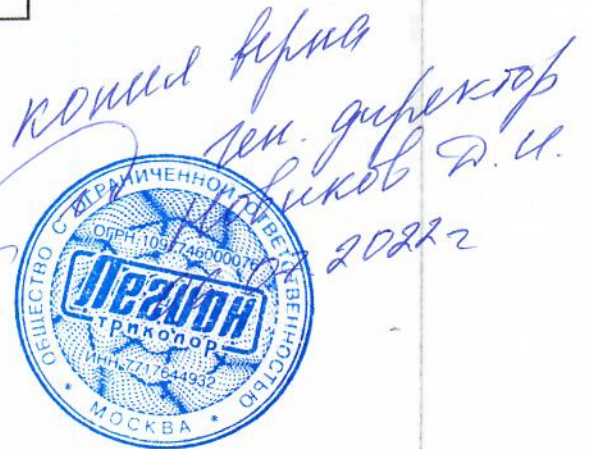 копия верна
ген. директор
Новиков Д. И.
02. 2022 г
ОБЩЕСТВО С ОГРАНИЧЕННОЙ ОТВЕТСТВЕННОСТЬЮ
ОГРН 109 7746000076
Легион
триколор
ИНН 7717644932
* МОСКВА *